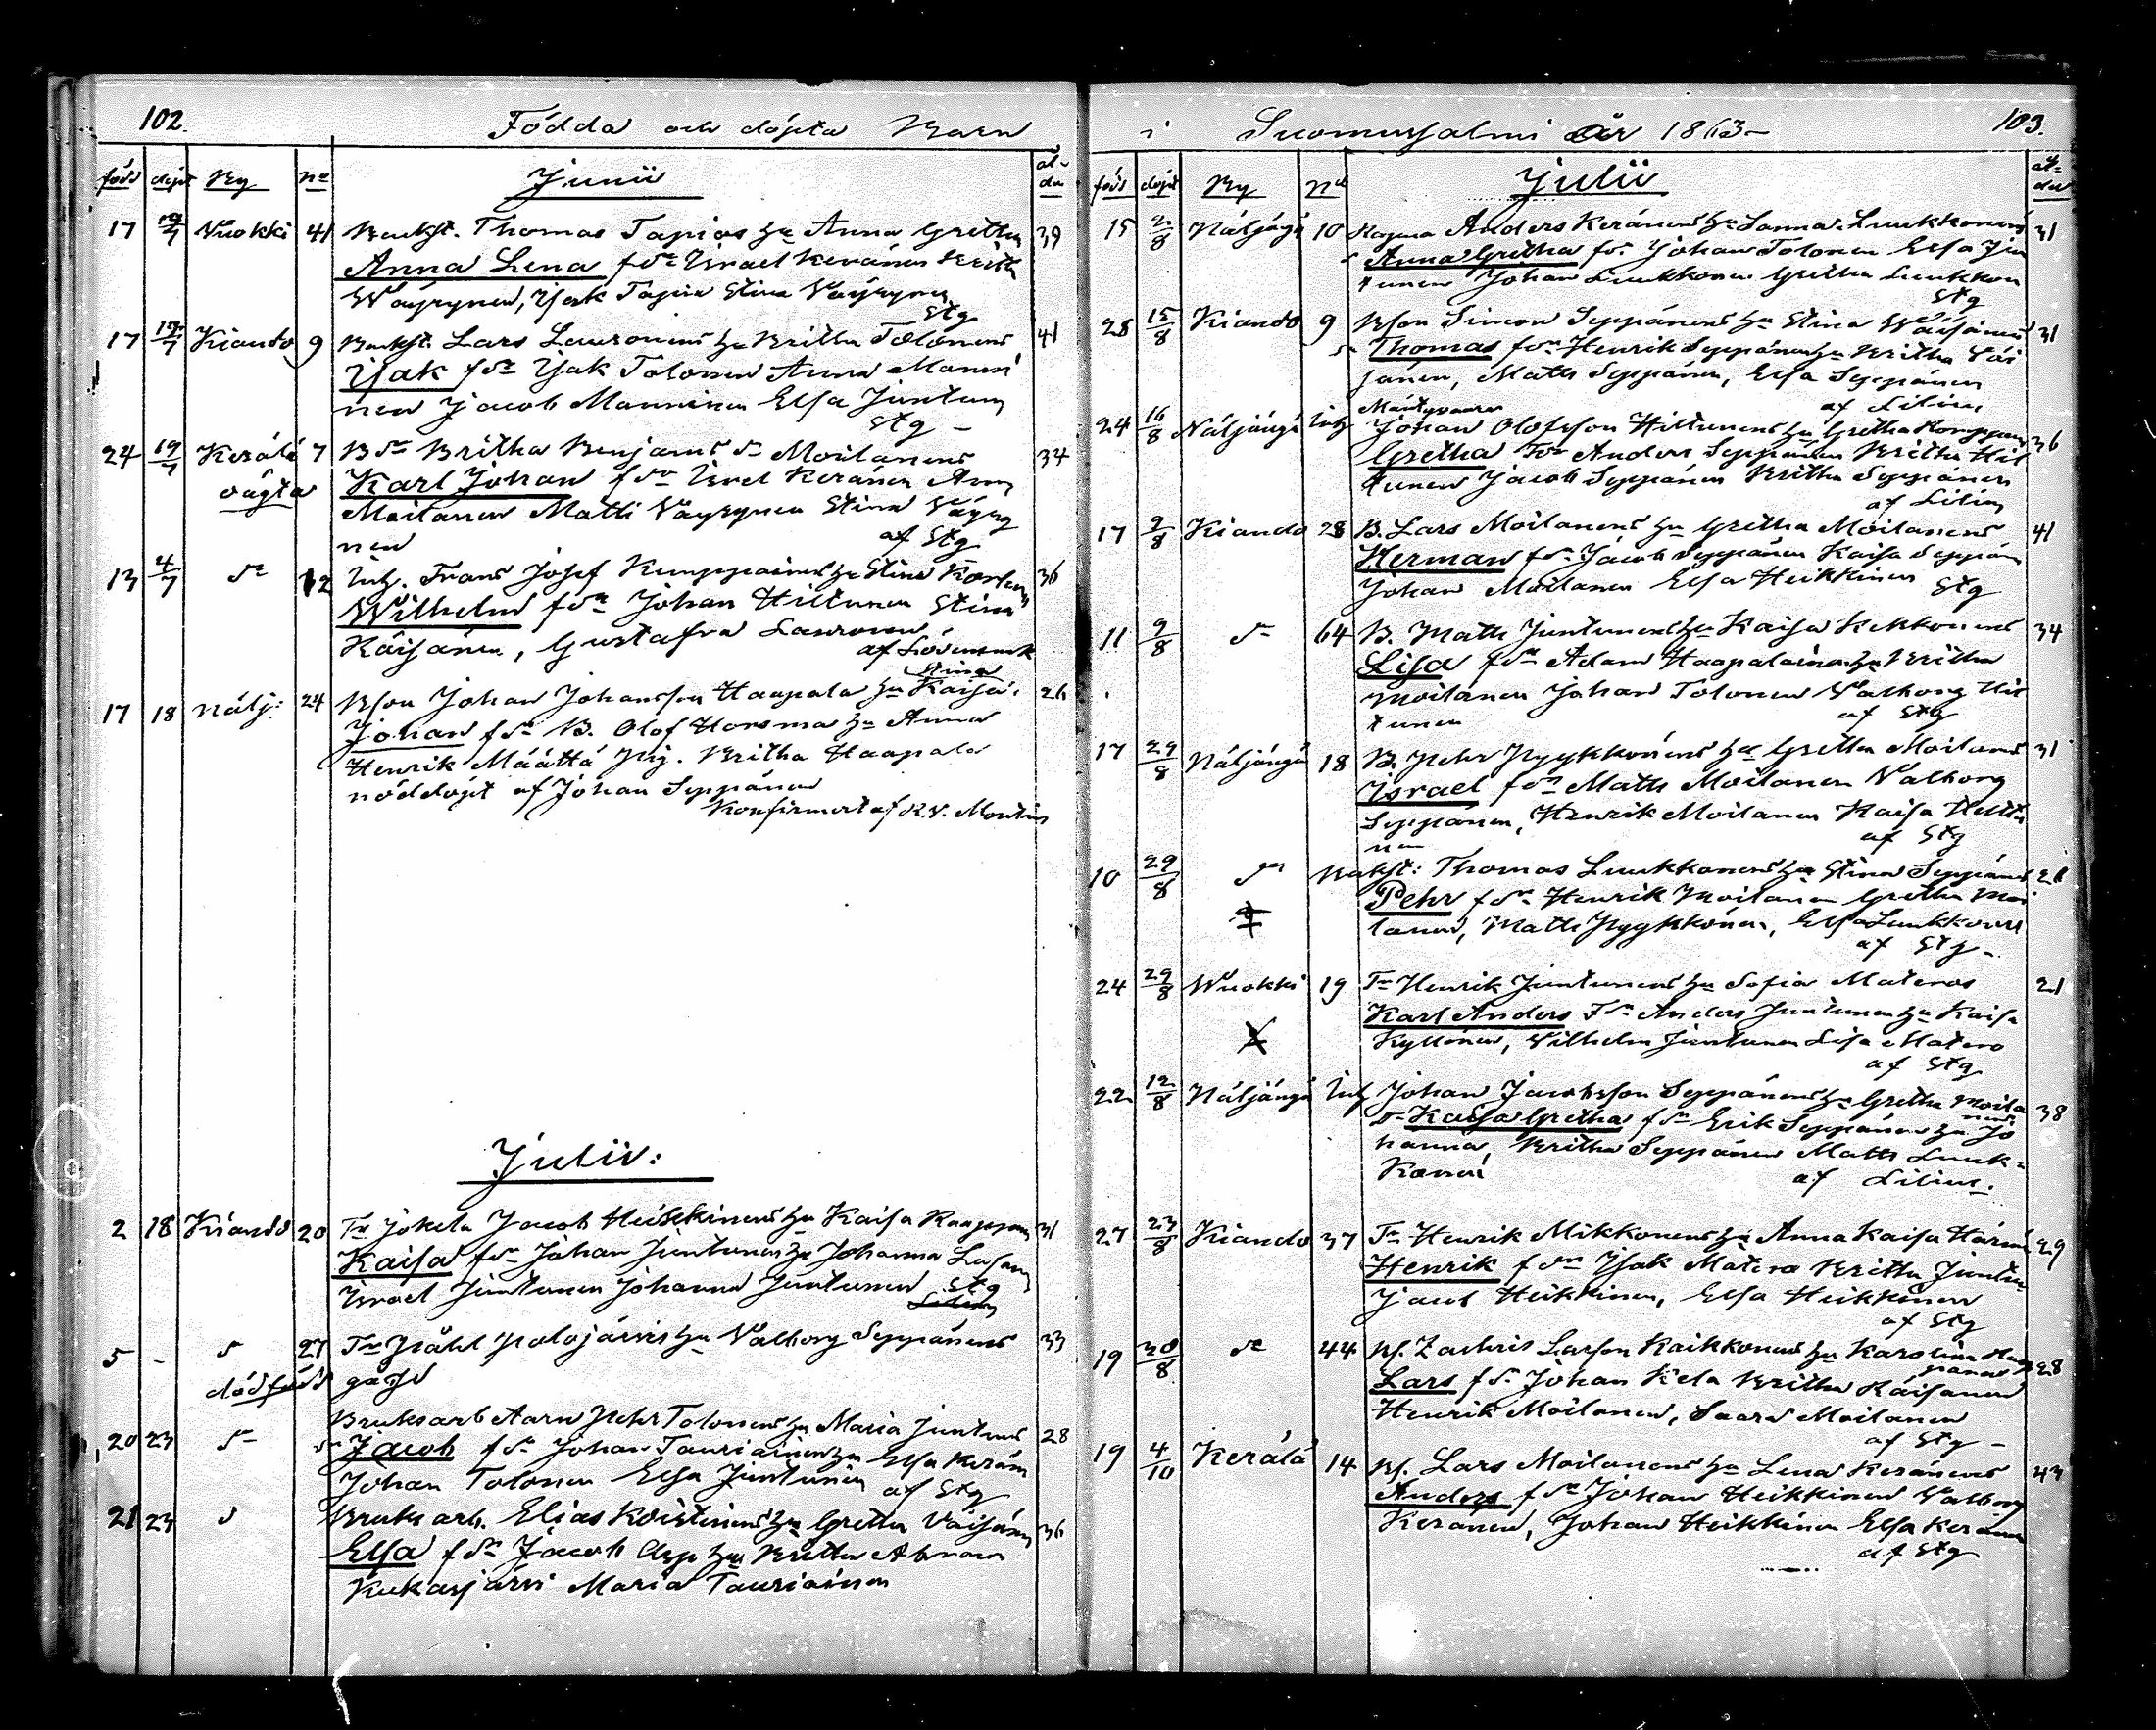 102.
Födda och döpta Barn
född döpt By No Junii ål-der
17 19/7 Wuokki 41 Backst. Thomas Tapios hu Anna Gretha 39
Anna Lena fdr Israel Keränen Britha
Wäyrynen, Isak Tapio Stina Wäyrynen
Stg
17 19/7 Kiando 9 Backst. Lars Lauronens hu Britha Tolonens 41
Isak fdr Isak Tolonen Anna Manni
nen Jacob Manninen Elsa Juntun
Stg -
24 19/7 Kerälä 7 Bdr Britha Benjamsdr Moilanens 34
oägta Karl Johan fdr Isral Keränen Anna
Moilanen Matti Väyrynen Stina Väyry
nen af Stg
13 4/7 dr 12 Inh. Frans Josef Kemppainens hu Stina Korhon 36
Wilhelm fdr Johan Hiltunen Stina
Käisänen, Gustafva Lauronen
af Lövenmark
Stina
17 18 Nälj: 24 Bson Johan Johansson Haapala hu Kaisa 26
Johan fdr B. Olof Horsma hu Anna
Henrik Määttä Pig. Britha Haapala
nöddöpt af Johan Seppänen
Konfirmert af K.V. Montin
Julii:
2 18 Kiando 20 Tr Jokela Jacob Heikkinens hu Kaisa 31
Kaisa fdr Johan Juntunen hu Johanna
Israel Juntunen Johanna Juntunen Stg
5 - d 27 Tr Påhl Polojärvis hu Valborg Seppänens 33
dödfödd gosse
Bruksarb Aarn Pehr Tolonens hu Maria Juntuns
20 23 dr Jacob fdr Johan Tauriainen hu Elsa Kerän 28
Johan Tolonen Elsa Juntunen af Stg
21 23 d Bruksarb. Elias Koistinens hu Gretha Väisänen 36
Elsa fdr Jacob Asp hu Britha Abram
Kukasjärvi Maria Tauriainen
i Suomussalmi år 1863- 103.
född döpt By No Julii ål-der
15 2/8 Näljängä 10 Anders Keränens hu Sanna Luukkonens 31
Anna Gretha fdr Johan Tolonen Elsa Jun
tunen Johan Luukkonen Gretha Luukkon
Stg
28 15/8 Kiando 9 Bson Simon Seppänens hu Stina Wäisänens 31
Thomas fdr Henrik Seppänen hu Britha Väi
sänen, Matts Seppänen, Elsa Seppänen
af Lilius
Mäntyvaara
24 16/8 Näljängä Inh Johan Olofsson Hiltunens hu Gretha Kemppain 36
Gretha Fdr Anders Seppänen Britha Hil
tunen Jacob Seppänen Britha Seppänen
af Lilius
17 9/8 Kiando 28 B. Lars Moilanens hu Gretha Moilanens 41
Herman fdr Jacob Seppänen Kaisa Seppän
Johan Moilanen Elsa Heikkinen Stg
11 9/8 dr 64 B. Matts Juntunens hu Kaisa Kekkonens 34
Lisa fdr Adam Haapalainen hu Britha
Moilanen Johan Tolonen Walborg Hil
tunen af Stg
17 29/8 Näljängä 18 B. Pehr Pyykkönens hu Gretha Moilans 31
Israel fdr Matts Moilanen Valborg
Seppänen, Henrik Moilanen Kaisa Heikki
nen af Stg
10 29/8 dr Backst: Thomas Luukkonens hu Stina Seppäns 21
Pehr fdr Henrik Moilanen Gretha Moi
lanen, Matts Pyykkönen, Elsa Luukkonen
af Stg -
24 29/8 Wuokki 19 Tr Henrik Juntunens hu Sofia Materos 21
Karl Anders Fdr Anders Juntunen hu Kaisa
Kyllönen, Vilhelm Juntunen Lisa Matero
af Stg
22 12/8 Näljängä Inh Johan Jacobsson Seppänens hu Gretha Moila 38
nens
dr Kaisa Gretha fdr Erik Seppänen hu Jo
hanna, Britha Seppänen Matts Luuk-
Konen af Lilius.
27 23/8 Kiando 37 Tr Henrik Mikkonens hu Anna Kaisa Härmä 29
Henrik fdr Isak Matero Britha Juntu-
Jacob Heikkinen, Elsa Heikkinen
af Stg
19 30/8 dr 44 Bs. Zachris Larsson Kaikkonens hu Karolina 28
Lars fdr Johan Kela Britha Räisänen
Henrik Moilanen, Saara Moilanen
af Stg -
19 4/10 Kerälä 14 Bs. Lars Moilanens hu Lena Keränens 43
Anders fdr Johan Heikkinen Walborg
Keränen, Johan Heikkinen Elsa Keränen
af Stg